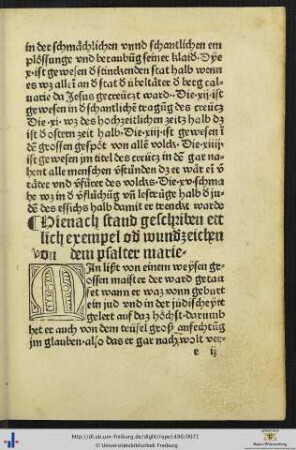 in der schmächlichen vnnd schantlichen em
plössunge vnd beraubūg seiner klaid· Dye
x·ist gewesen ð stinckenden stat halb wenn
es wz allē an ð stat ð übeltätter ð berg cal
uarie da Jesus gecreüczt ward·· Die·xij·ist
gewesen in ð schantlichē tragūg des creücz
Die·xi·wz des hochzeitlichen zeitz halb dz
ist ð ostern zeit halb·Die·xiij·ist gewesen ī
dē grossen gespöt von allē volck·Die·xiiij
gewesen im titel des creücz in dē gar na-
hent alle menschen
täter vnd des volcks·Die·xv·schma
he wz in halb ð ju-
dē des essichs halb damit er trenckt wardē
Hienach stand geschriben ett
lich exempel oð wundzeichen
von dem psalter marie·
MAn lißt von einem weysen gr-
ossen maister der ward getau
fet wann er waz vonn geburt
ein jud vnd in der jüdischeytt
gelert auf daz höchst·darumb
het er auch von dem teüfel groß anfechtūg
jm glauben·also das er gar nach wolt ver-
e ij
http://dl.ub.uni-freiburg.de/diglit/rupe1490/0071
© Universitätsbibliothek Freiburg
Baden-Württemberg